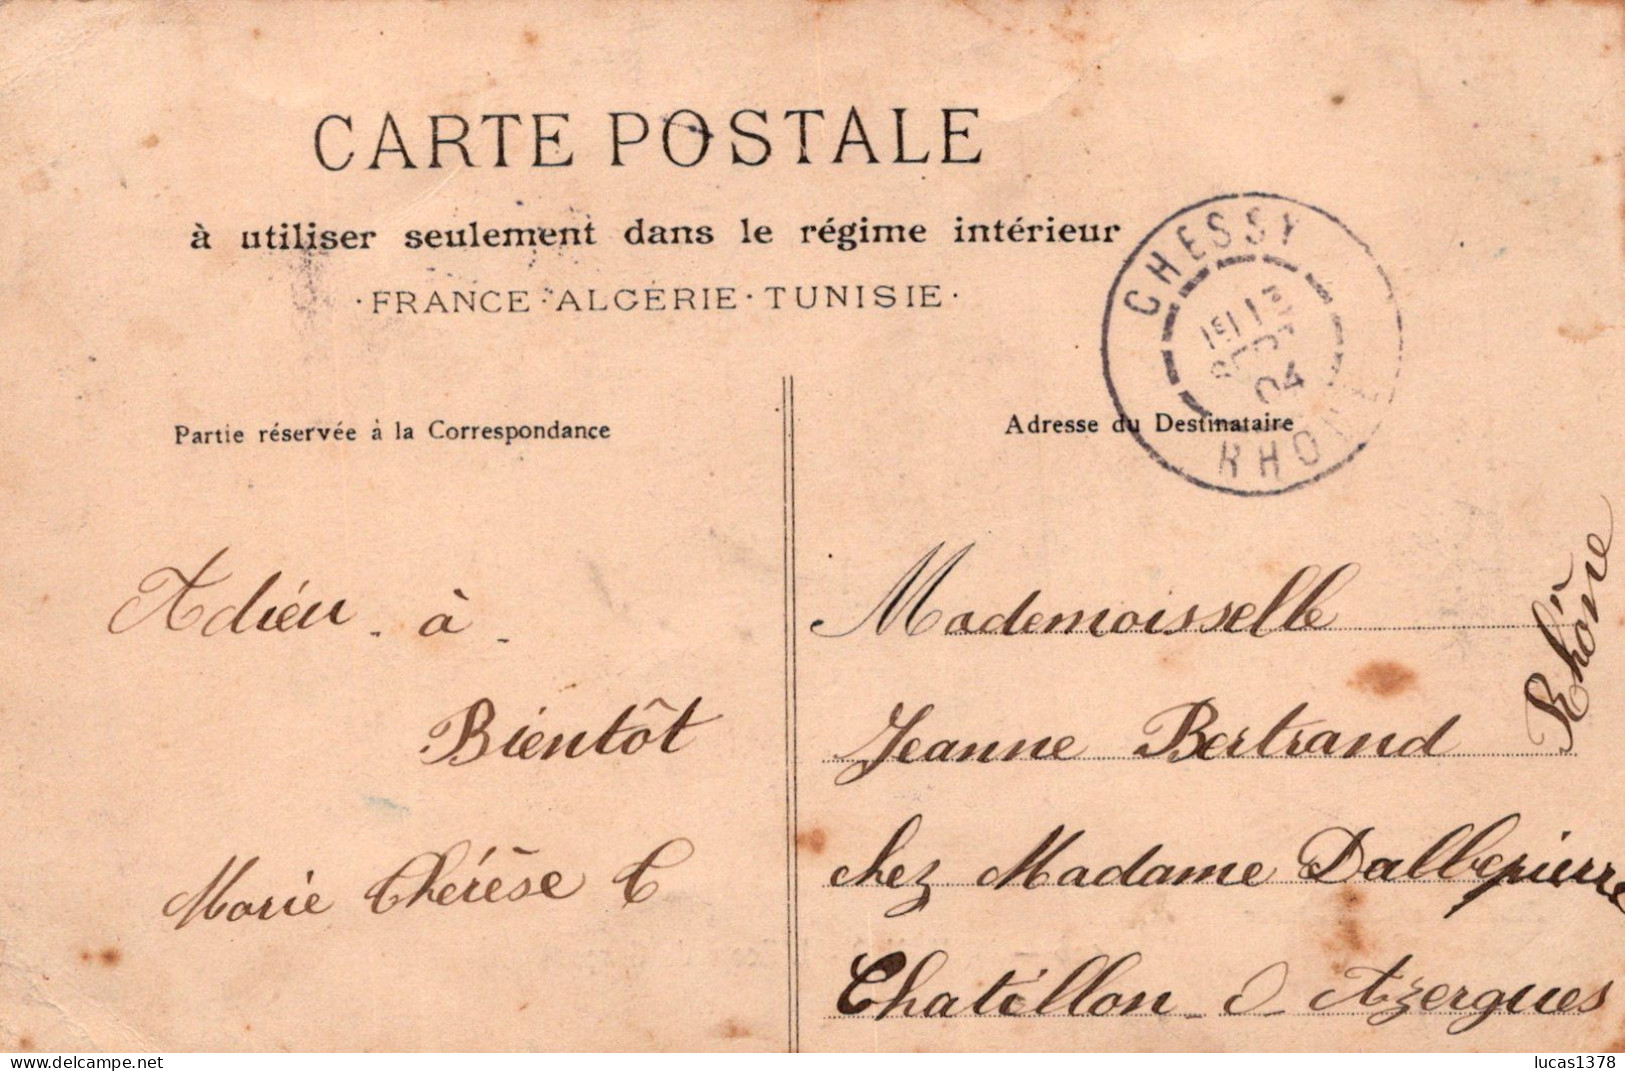 CARTE POSTALE
à utiliser seulement dans le régime intérieur
·FRANCE·ALGÉRIE·TUNISIE·
CHESSY
SEPT
04
RHONE
Partie réservée à la Correspondance
Adresse du Destinataire
Adiéu - à -
Bientôt
Marie Thérèse C
Mademoisselle
Jeanne Bertrand
chez Madame Dalbepierre
Chatillon - d Azergues
Rhône
delcampe.net
lucas1378